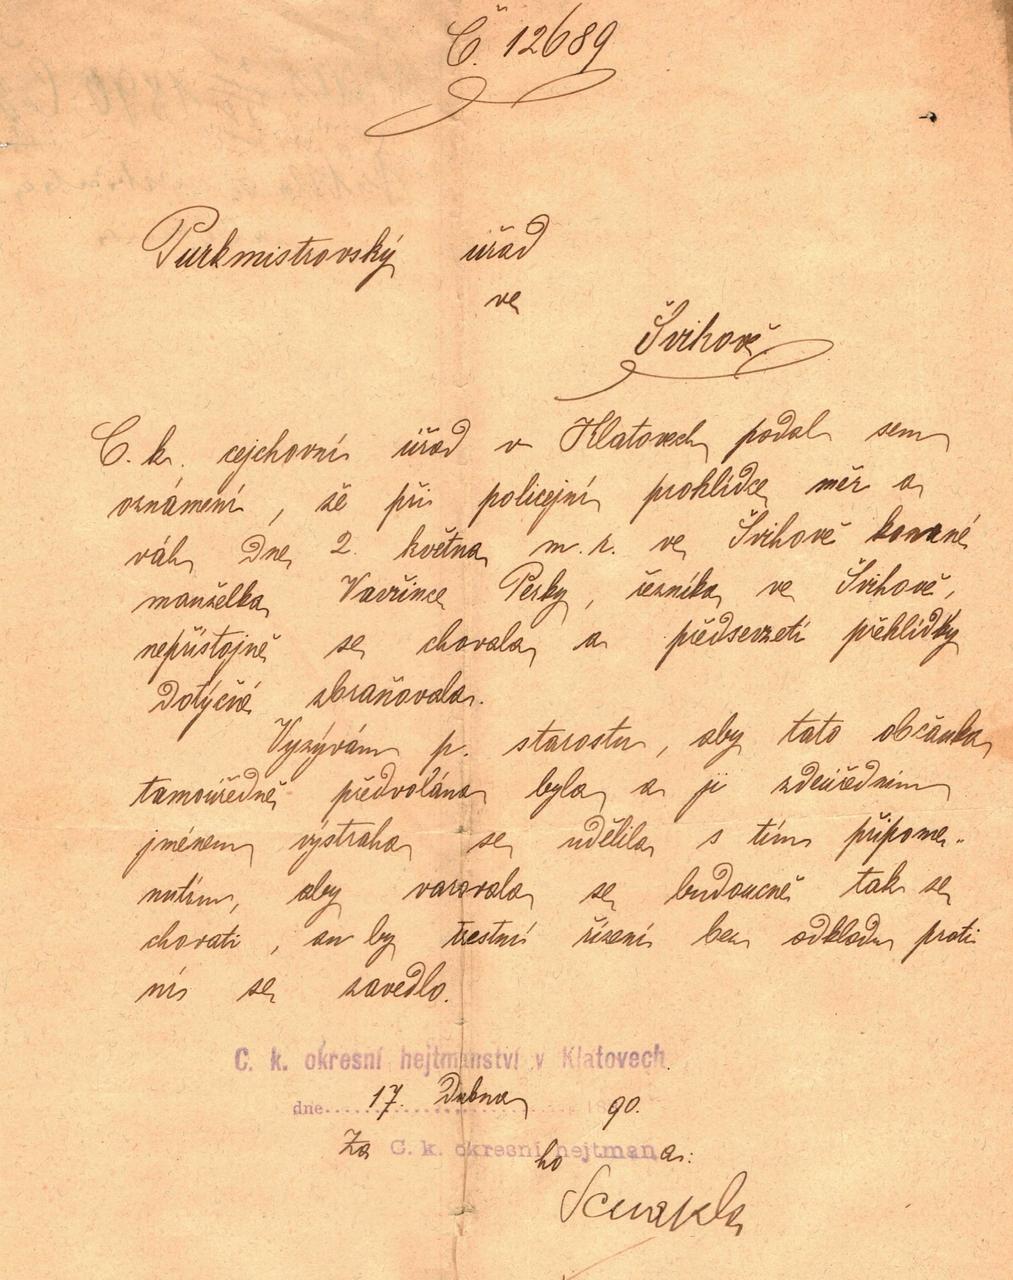 Č. 12689
Purkmistrovský úřad
ve
Švihově
C. k. cejchovní úřad v Klatovech podal sem
oznámení, že při policejní prohlídce měr a
váh dne 2. května m. r. ve Švihově konané
manželka Vavřince Pesky, řezníka ve Švihově,
nepřístojně se chovala a předsevzetí přehlídky
dotýčné zbraňovala.
Vyzývám p. starostu, aby tato občanka
tamoúředně předvolána byla a jí zdeúředním
jménem výstraha se udělila s tím připome-
nutím, aby varovala se budoucně tak se
chovati, an by trestní řízení bez odkladu proti
ní se zavedlo.
C. k. okresní hejtmanství v Klatovech
dne 17. dubna 1890.
Za C. k. okresního hejtmana: